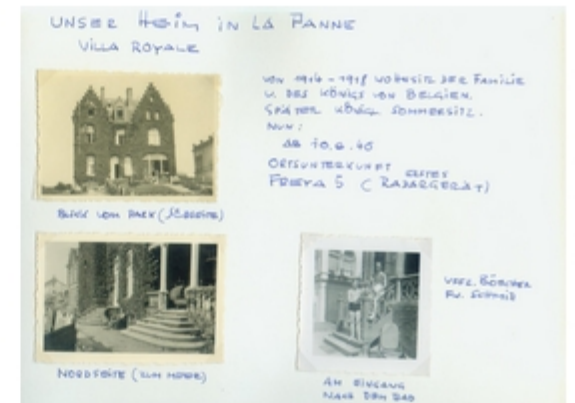 UNSER HEIM IN LA PANNE
VILLA ROYALE
VON 1914-1918 WOHNSITZ DER FAMILIE
U. DES KÖNIGS VON BELGIEN.
SPÄTER KÖNIGL. SOMMERSITZ.
NUN:
AB 10.6.40
ORTSUNTERKUNFT
ERSTES
FREYA 5 (RADARGERÄT)
BLICK VOM PARK (SÜDSEITE)
NORDSEITE (ZUM MEERE)
BÖTTCHER
FW. SCHMID
AM EINGANG
NACH DEM BAD